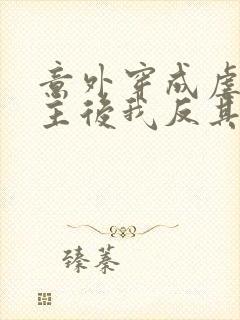 意外穿成虐
主後我反其
臻蓁